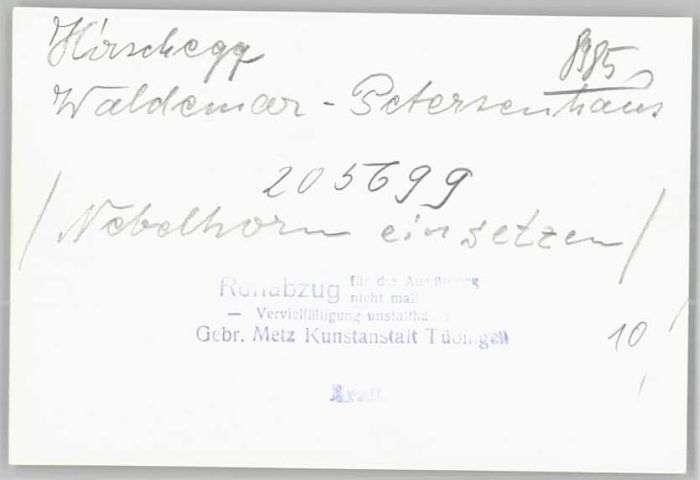 Hirschegg
Waldemar - Petersenhaus
205699
/ Nebelhorn einsetzen /
Rohabzug für die Ausführung
nicht maß
— Vervielfältigung unstatthaft
Gebr. Metz Kunstanstalt Tübingen
10